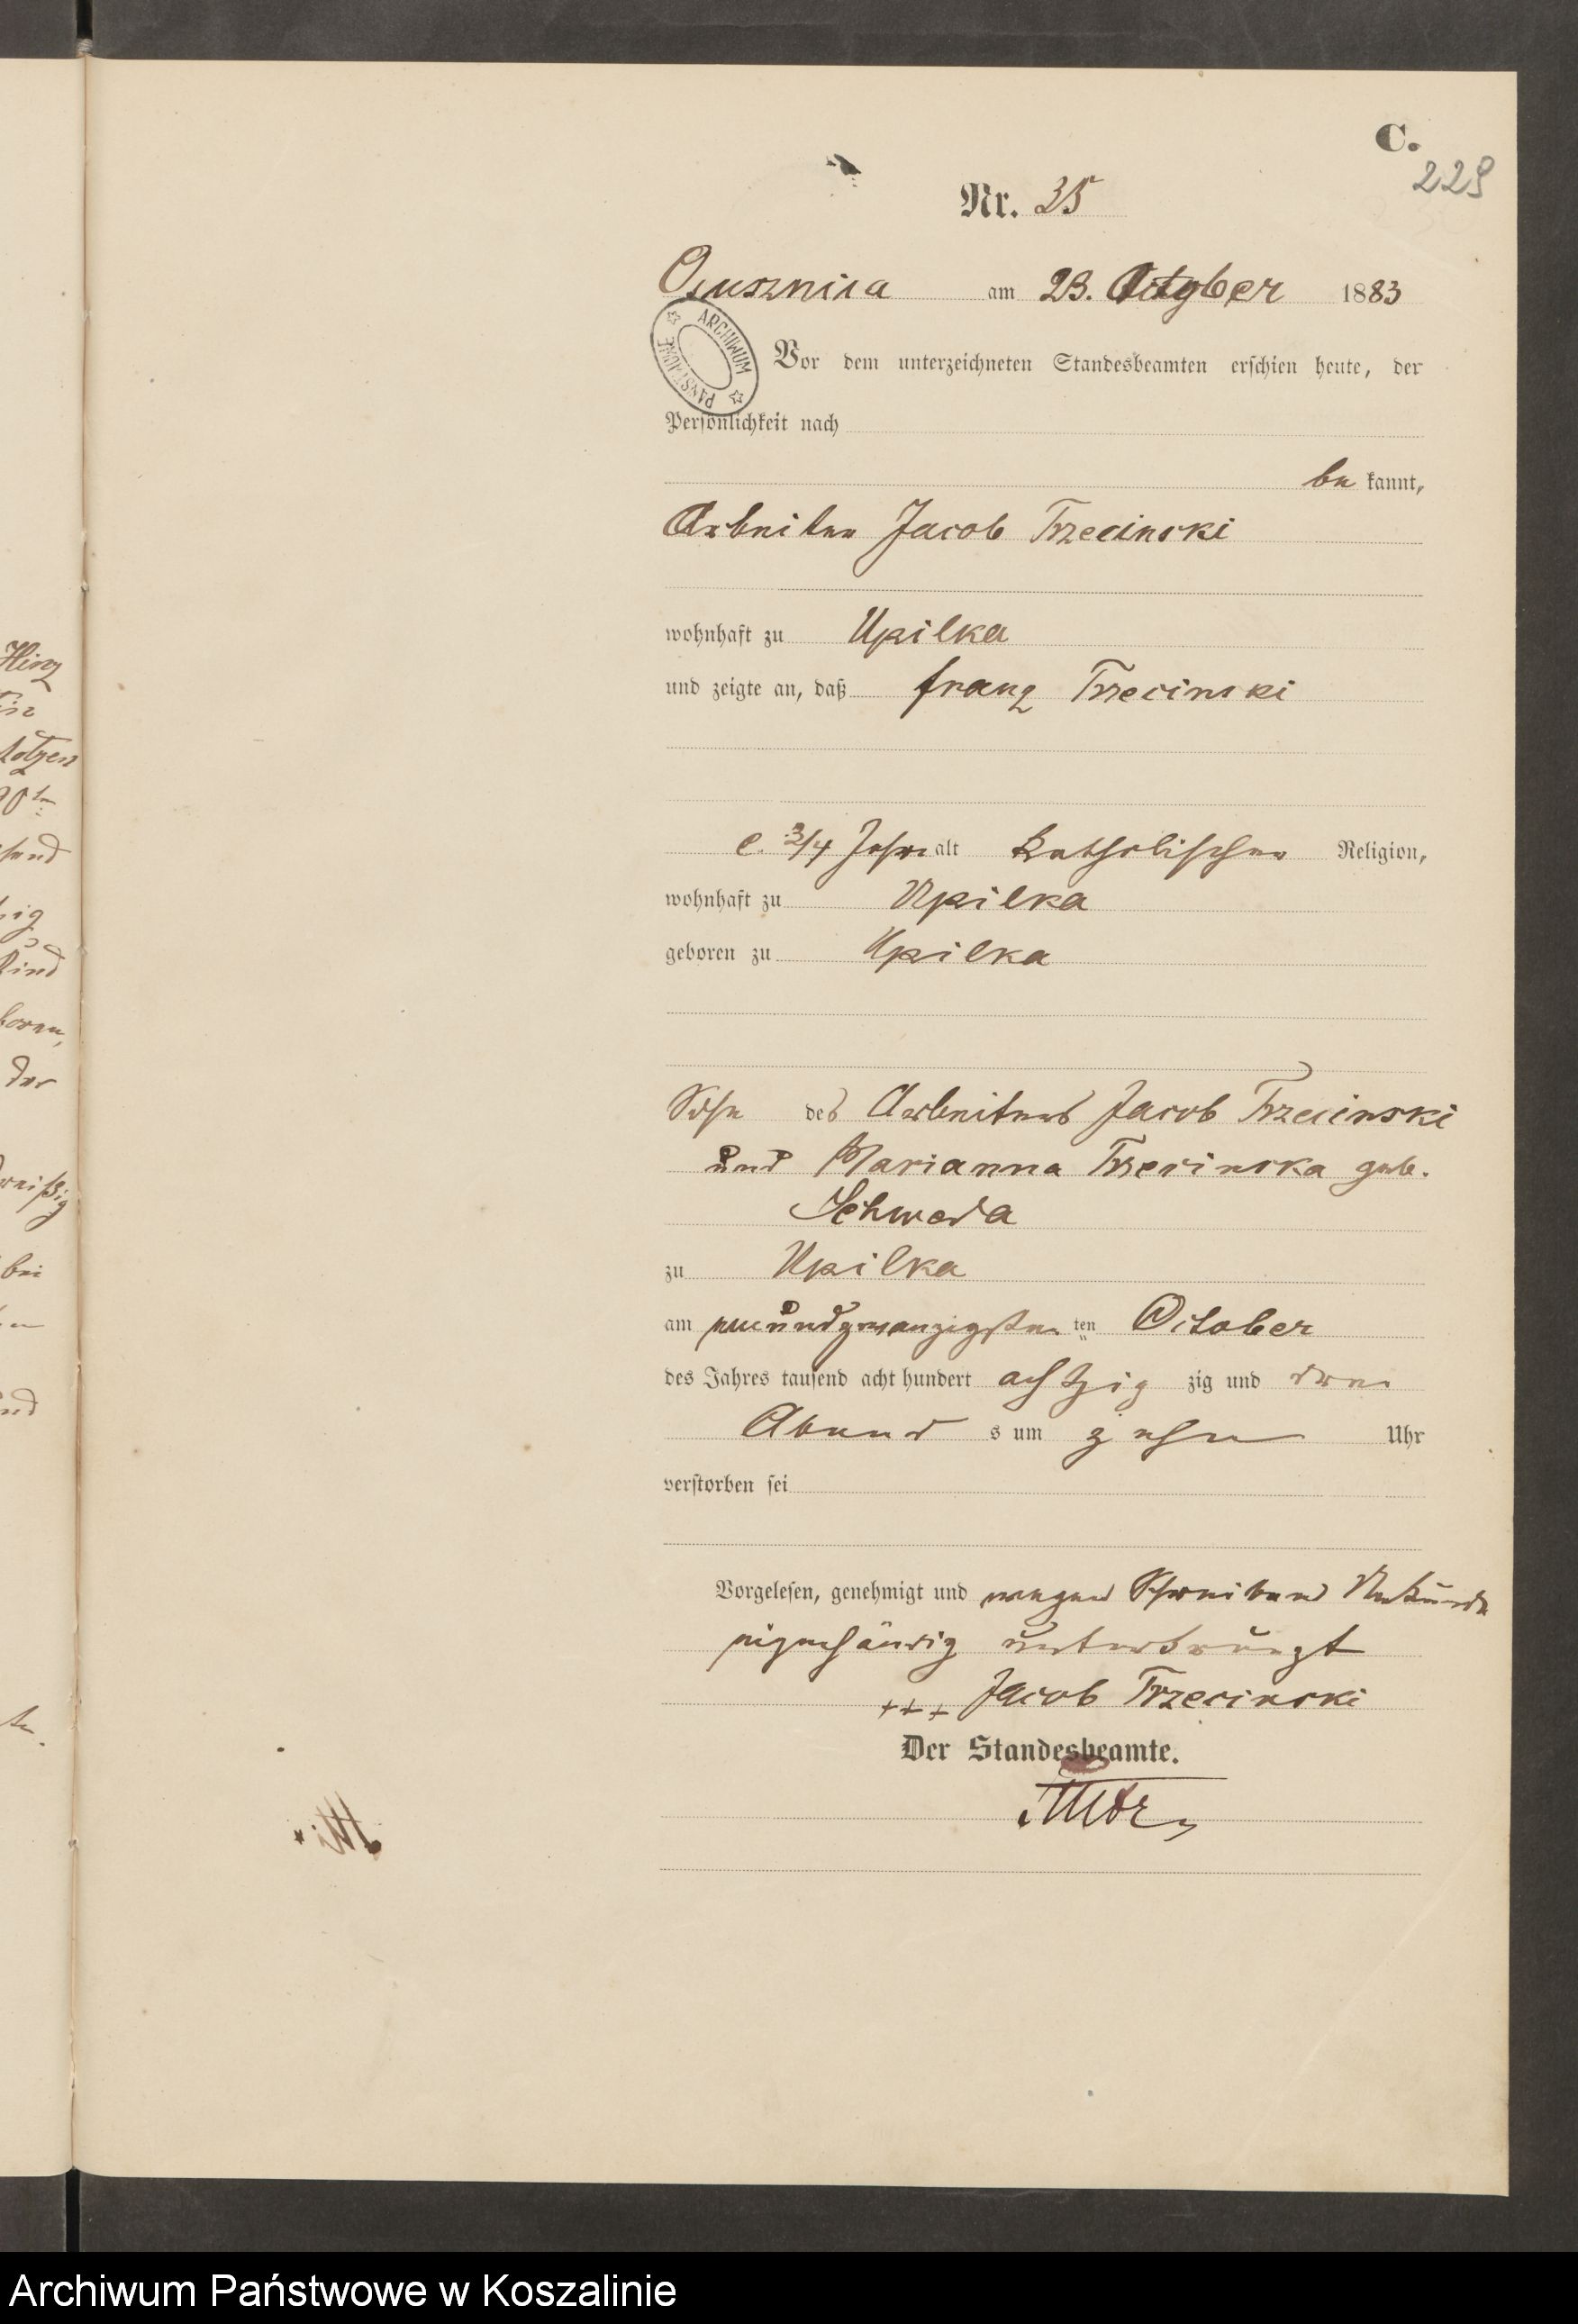 C.
229
Nr. 35
Osusznica am 23. October 1883
ARCHIWUM PAŃSTWOWE
Vor dem unterzeichneten Standesbeamten erschien heute, der
Persönlichkeit nach
be kannt,
Arbeiter Jacob Trzecinski
wohnhaft zu Upilka
und zeigte an, daß Franz Trzecinski
3/4 Jahr alt katholischer Religion,
wohnhaft zu Upilka
geboren zu Upilka
Sohn des Arbeiters Jacob Trzecinski
und Marianna Trzecinska geb.
Schweda
zu Upilka
am ten October
des Jahres tausend acht hundert achtzig zig und drei
Abend s um zehn Uhr
verstorben sei
Vorgelesen, genehmigt und wegen Schreibens Unkunde
eigenhändig unterkreuzt
+++ Jacob Trzecinski
Der Standesbeamte.
Hinz
sind
der
bei
Archiwum Państwowe w Koszalinie